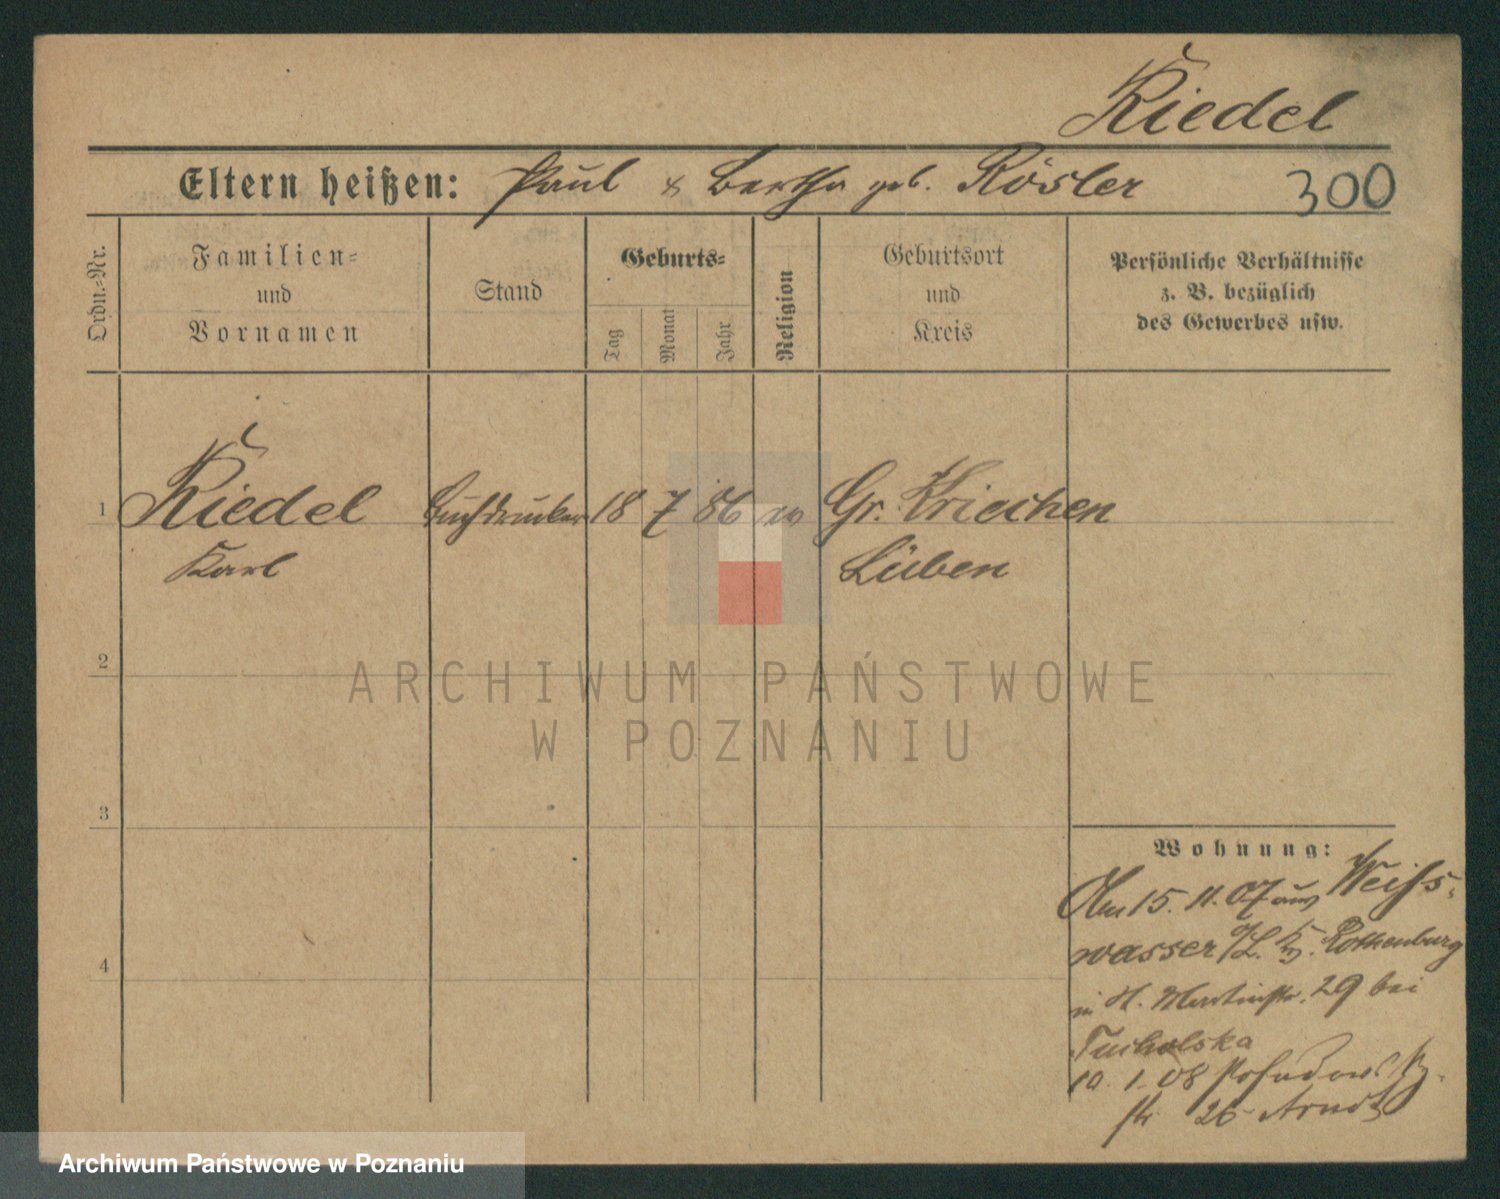 Riedel
Eltern heißen: Paul & Bertha geb. Rösler 300
Ordn.-Nr.
Familien-
und
Vornamen
Stand
Geburts-
Tag
Monat
Jahr
Religion
Geburtsort
und
Kreis
Persönliche Verhältnisse
z. B. bezüglich
des Gewerbes usw.
1 Riedel Buchdrucker 18 7 86 ev Gr. Kriechen
Karl Lüben
2
ARCHIWUM PAŃSTWOWE
W POZNANIU
3
Wohnung:
Am 15. 11. 07 aus Weiss-
wasser O/L. Kr. Rothenburg
in H. Martinstr. 29 bei
Tucholska
10. 1. 08 Posadowsky-
str 26 Arndt
4
Archiwum Państwowe w Poznaniu